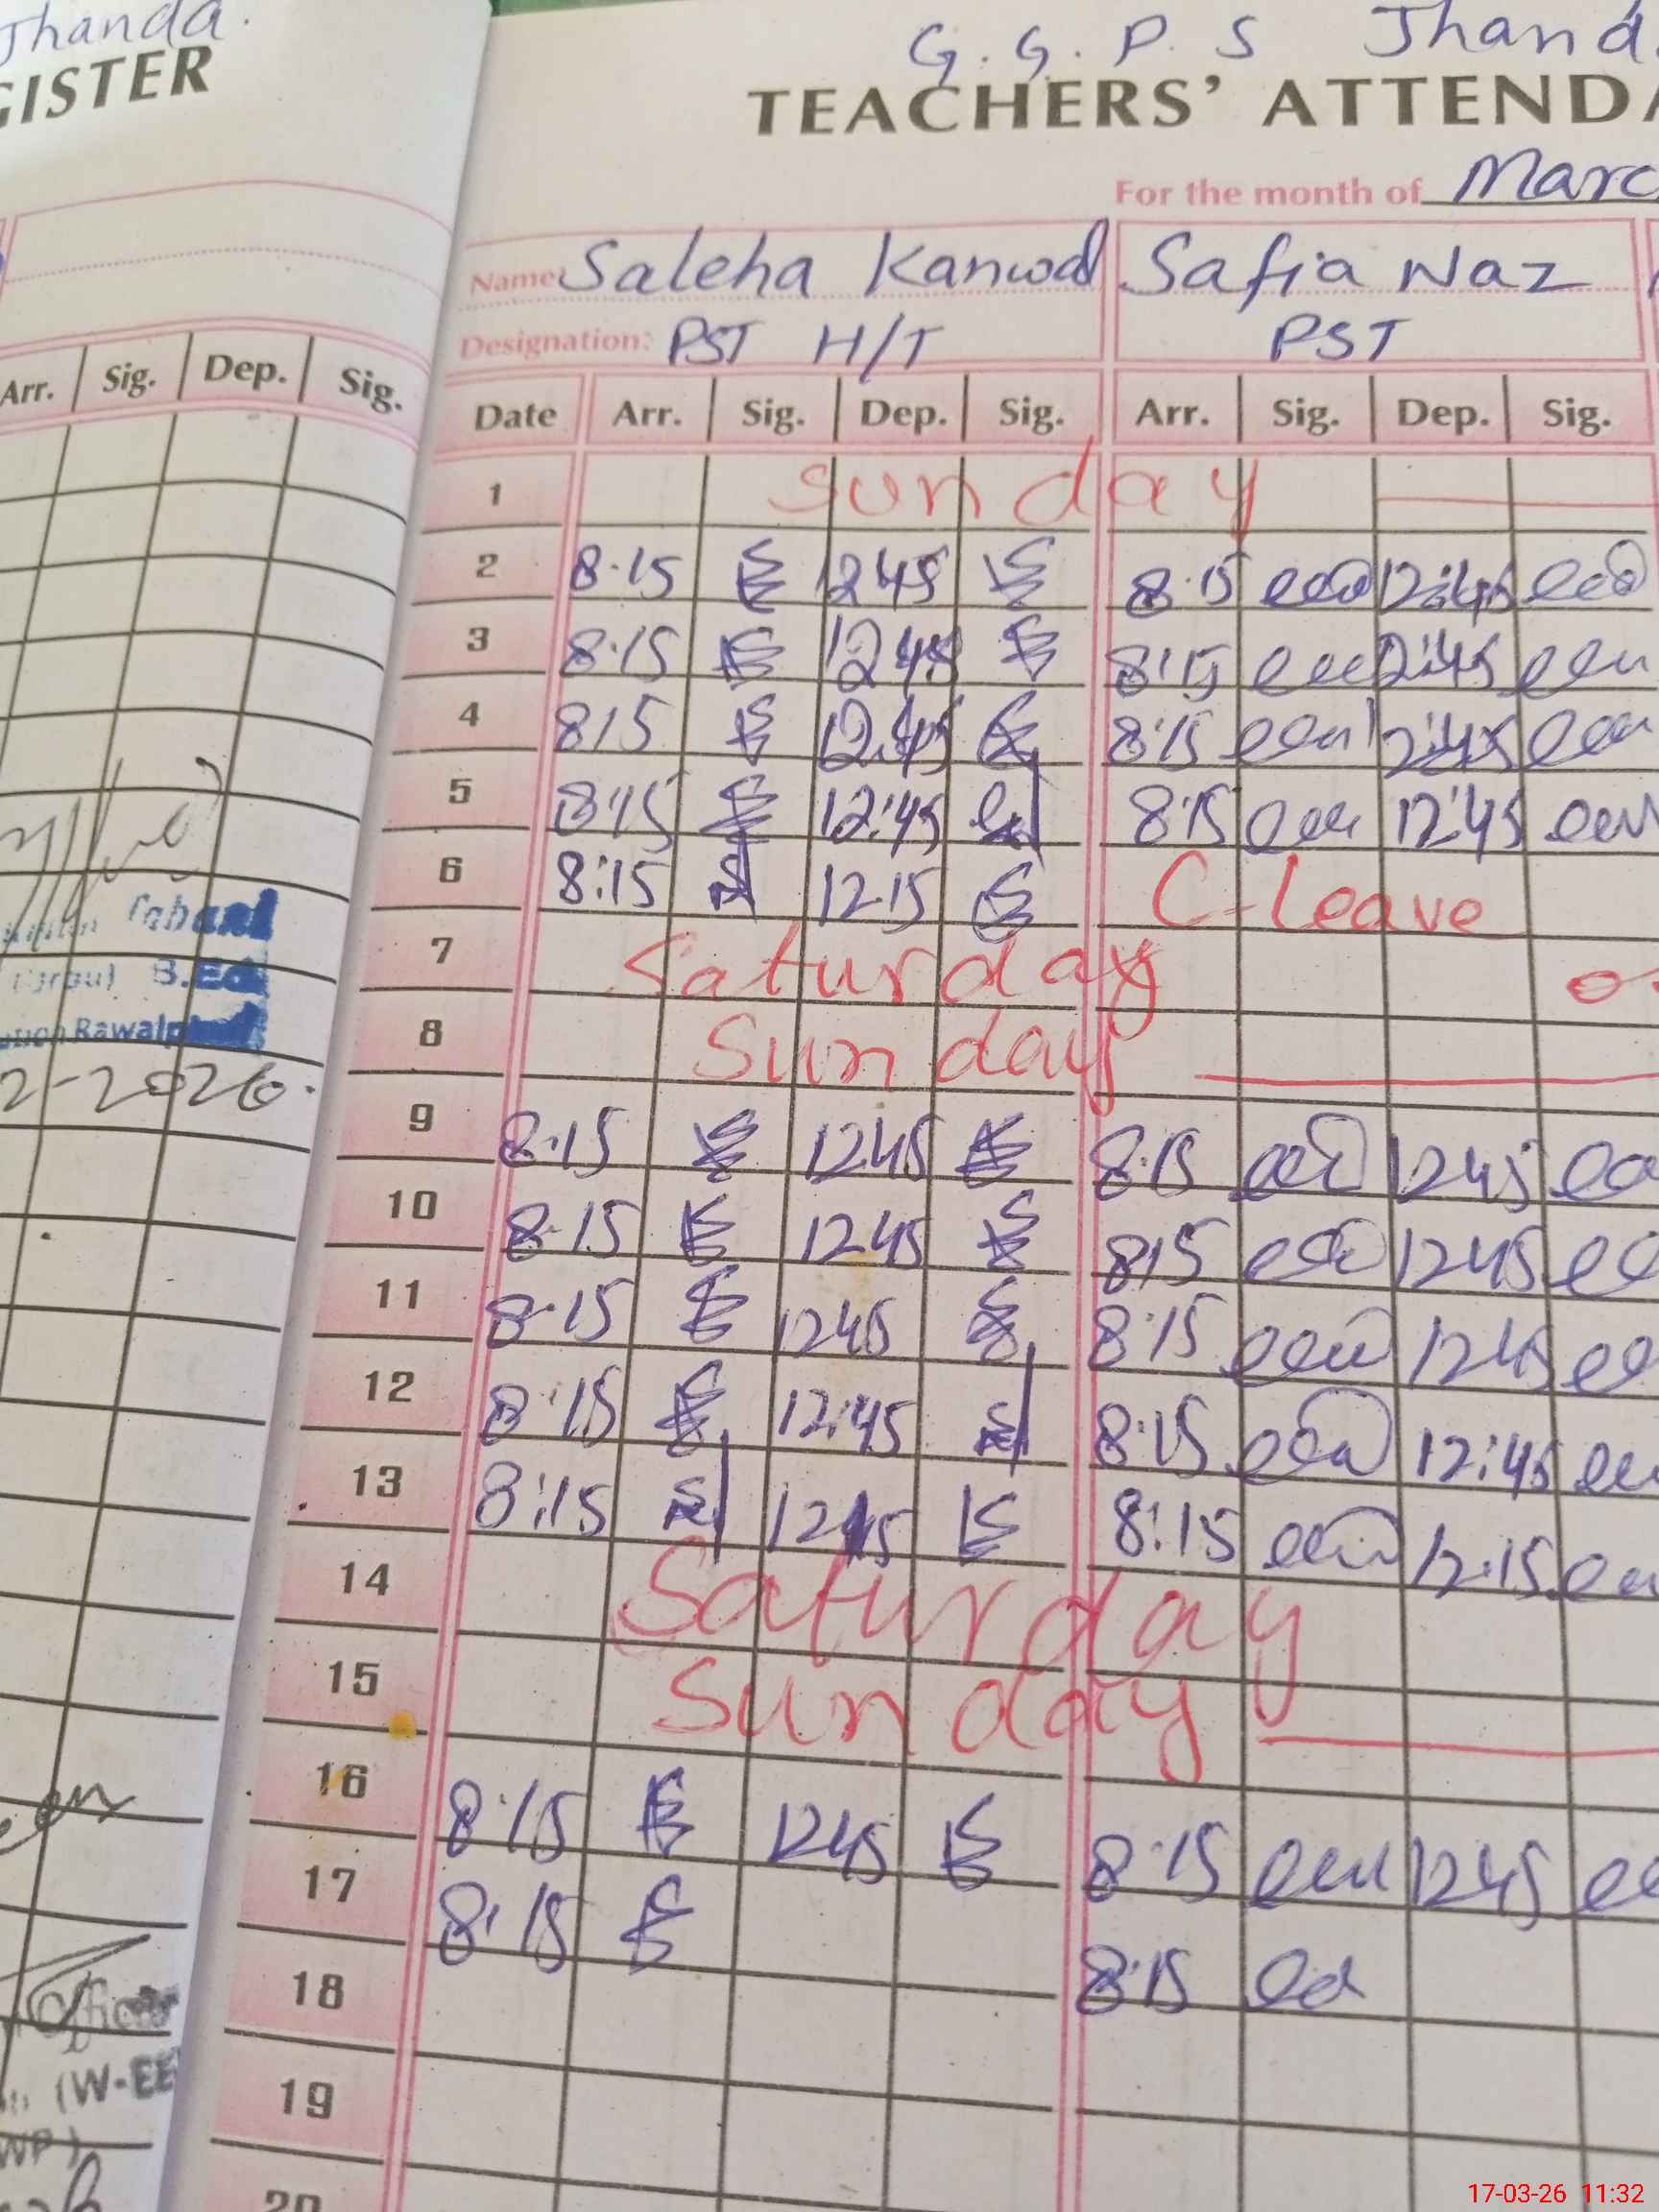 Jhanda.
GISTER
Arr. Sig. Dep. Sig.
B.Ed
Rawalp
2-2026.
(W-EE
WP)
G.G.P.S Jhand
TEACHERS' ATTENDA
For the month of Marc
Name: Saleha Kanwal Safia Naz
Designation: PST H/T PST
Date Arr. Sig. Dep. Sig. Arr. Sig. Dep. Sig.
1 Sunday
2 8.15 1245 8.15 12:45
3 8.15 1245 8:15 12:45
4 815 12.45 8:15 12:45
5 8:15 12:45 8:15 12:45
6 8:15 12.15 C-Leave
7 Saturday
8 Sunday
9 8.15 1245 8.15 1245
10 8.15 1245 815 1245
11 8.15 1245 8:15 1245
12 8:15 12:45 8:15 12:45
13 8:15 8:15 12.15
14 Saturday
15 Sunday
16 8:15 1245 8:15 1245
17 8:15 8:15
18
19
20
17-03-26 11:32